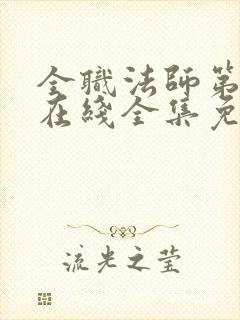 全職法師第
在綫全集免
流光之莹